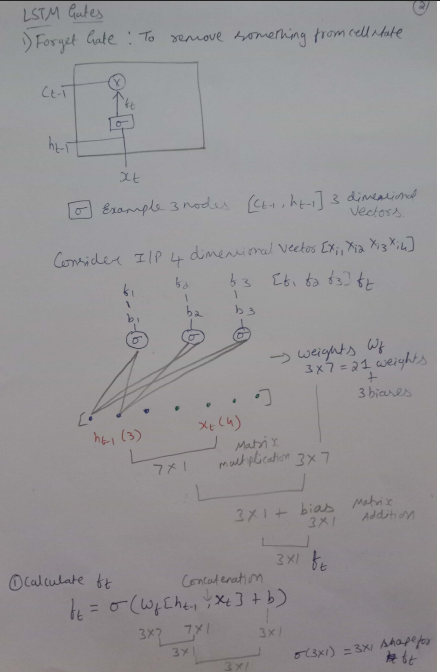 (2)
LSTM Gates
1) Forget Gate : To remove something from cell state
Ct-1
x
ft
σ
ht-1
xt
σ Example 3 nodes [Ct-1, ht-1] 3 dimensional
vectors
Consider I/P 4 dimensional vector [xi1 xi2 xi3 xi4]
f1 f2 f3 [f1 f2 f3] ft
b1 b2 b3
σ σ σ
→ weights Wf
3×7 = 21 weights
+
3 biases
[ ]
ht-1 (3) xt (4)
7×1 Matrix multiplication 3×7
3×1 + bias Matrix
3×1 Addition
3×1 ft
① Calculate ft Concatenation
ft = σ(Wf[ht-1 , xt] + b)
3×7 7×1 3×1
3×1
3×1
σ(3×1) = 3×1 shape for
ft